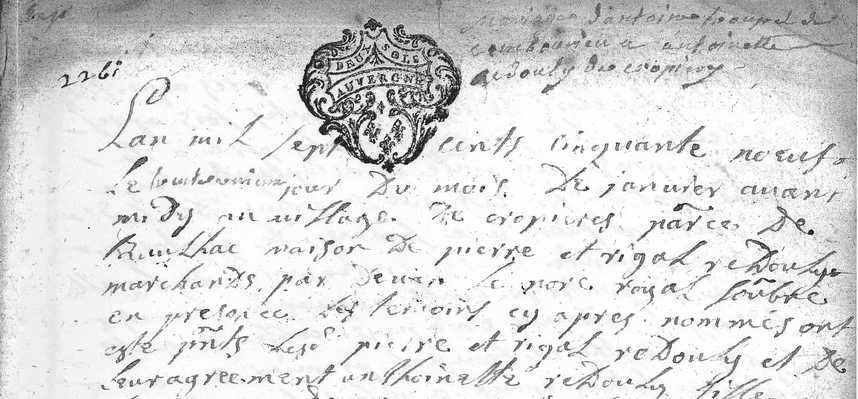 mariage d'antoine de
a antoinette
redouly de cropieres
226
DEUX SOLS
AUVERGNE
Lan mil sept cents cinquante noeuf
Le jour Du mois De janvier avant
midy au village De cropieres parce De
maison De pierre et rigal reDouly
marchands par Devan Le nore royal soubre
en presence Des temoins cy apres nommés ont
este pnts Lesd pierre et rigal reDouly et De
Leur agreement anthoinette reDouly fille